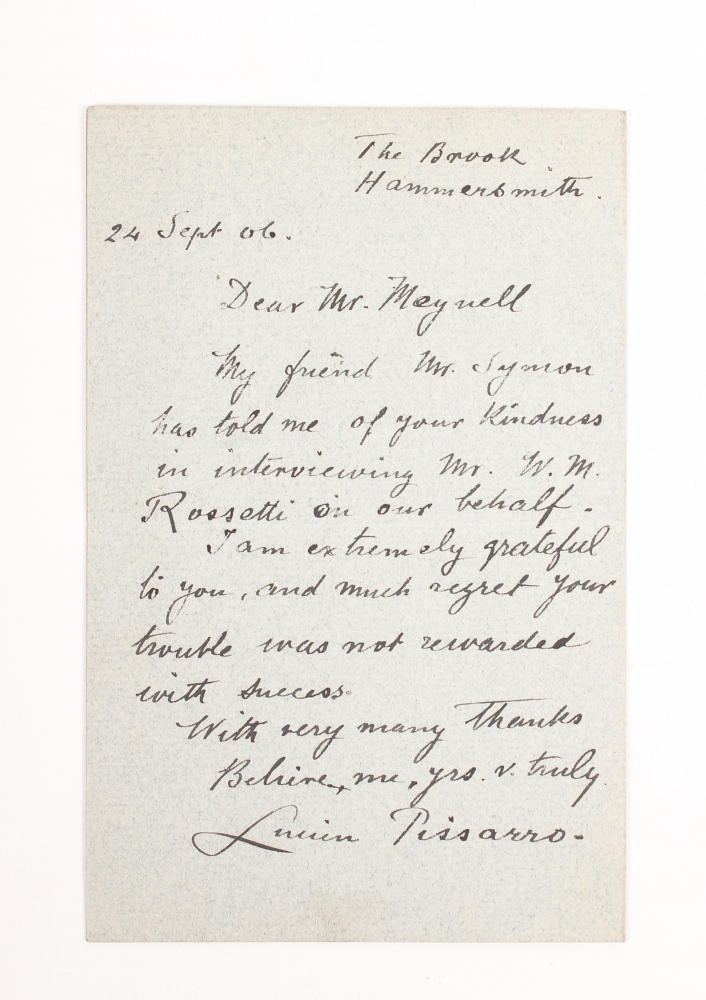 The Brook
Hammersmith.
24 Sept 06.
Dear Mr. Meynell
My friend Mr. Symon
has told me of your Kindness
in interviewing Mr. W. M.
Rossetti on our behalf.
I am extremely grateful
to you, and much regret your
trouble was not rewarded
with success.
With very many thanks
Believe, me, yrs. v. truly
Lucien Pissarro-